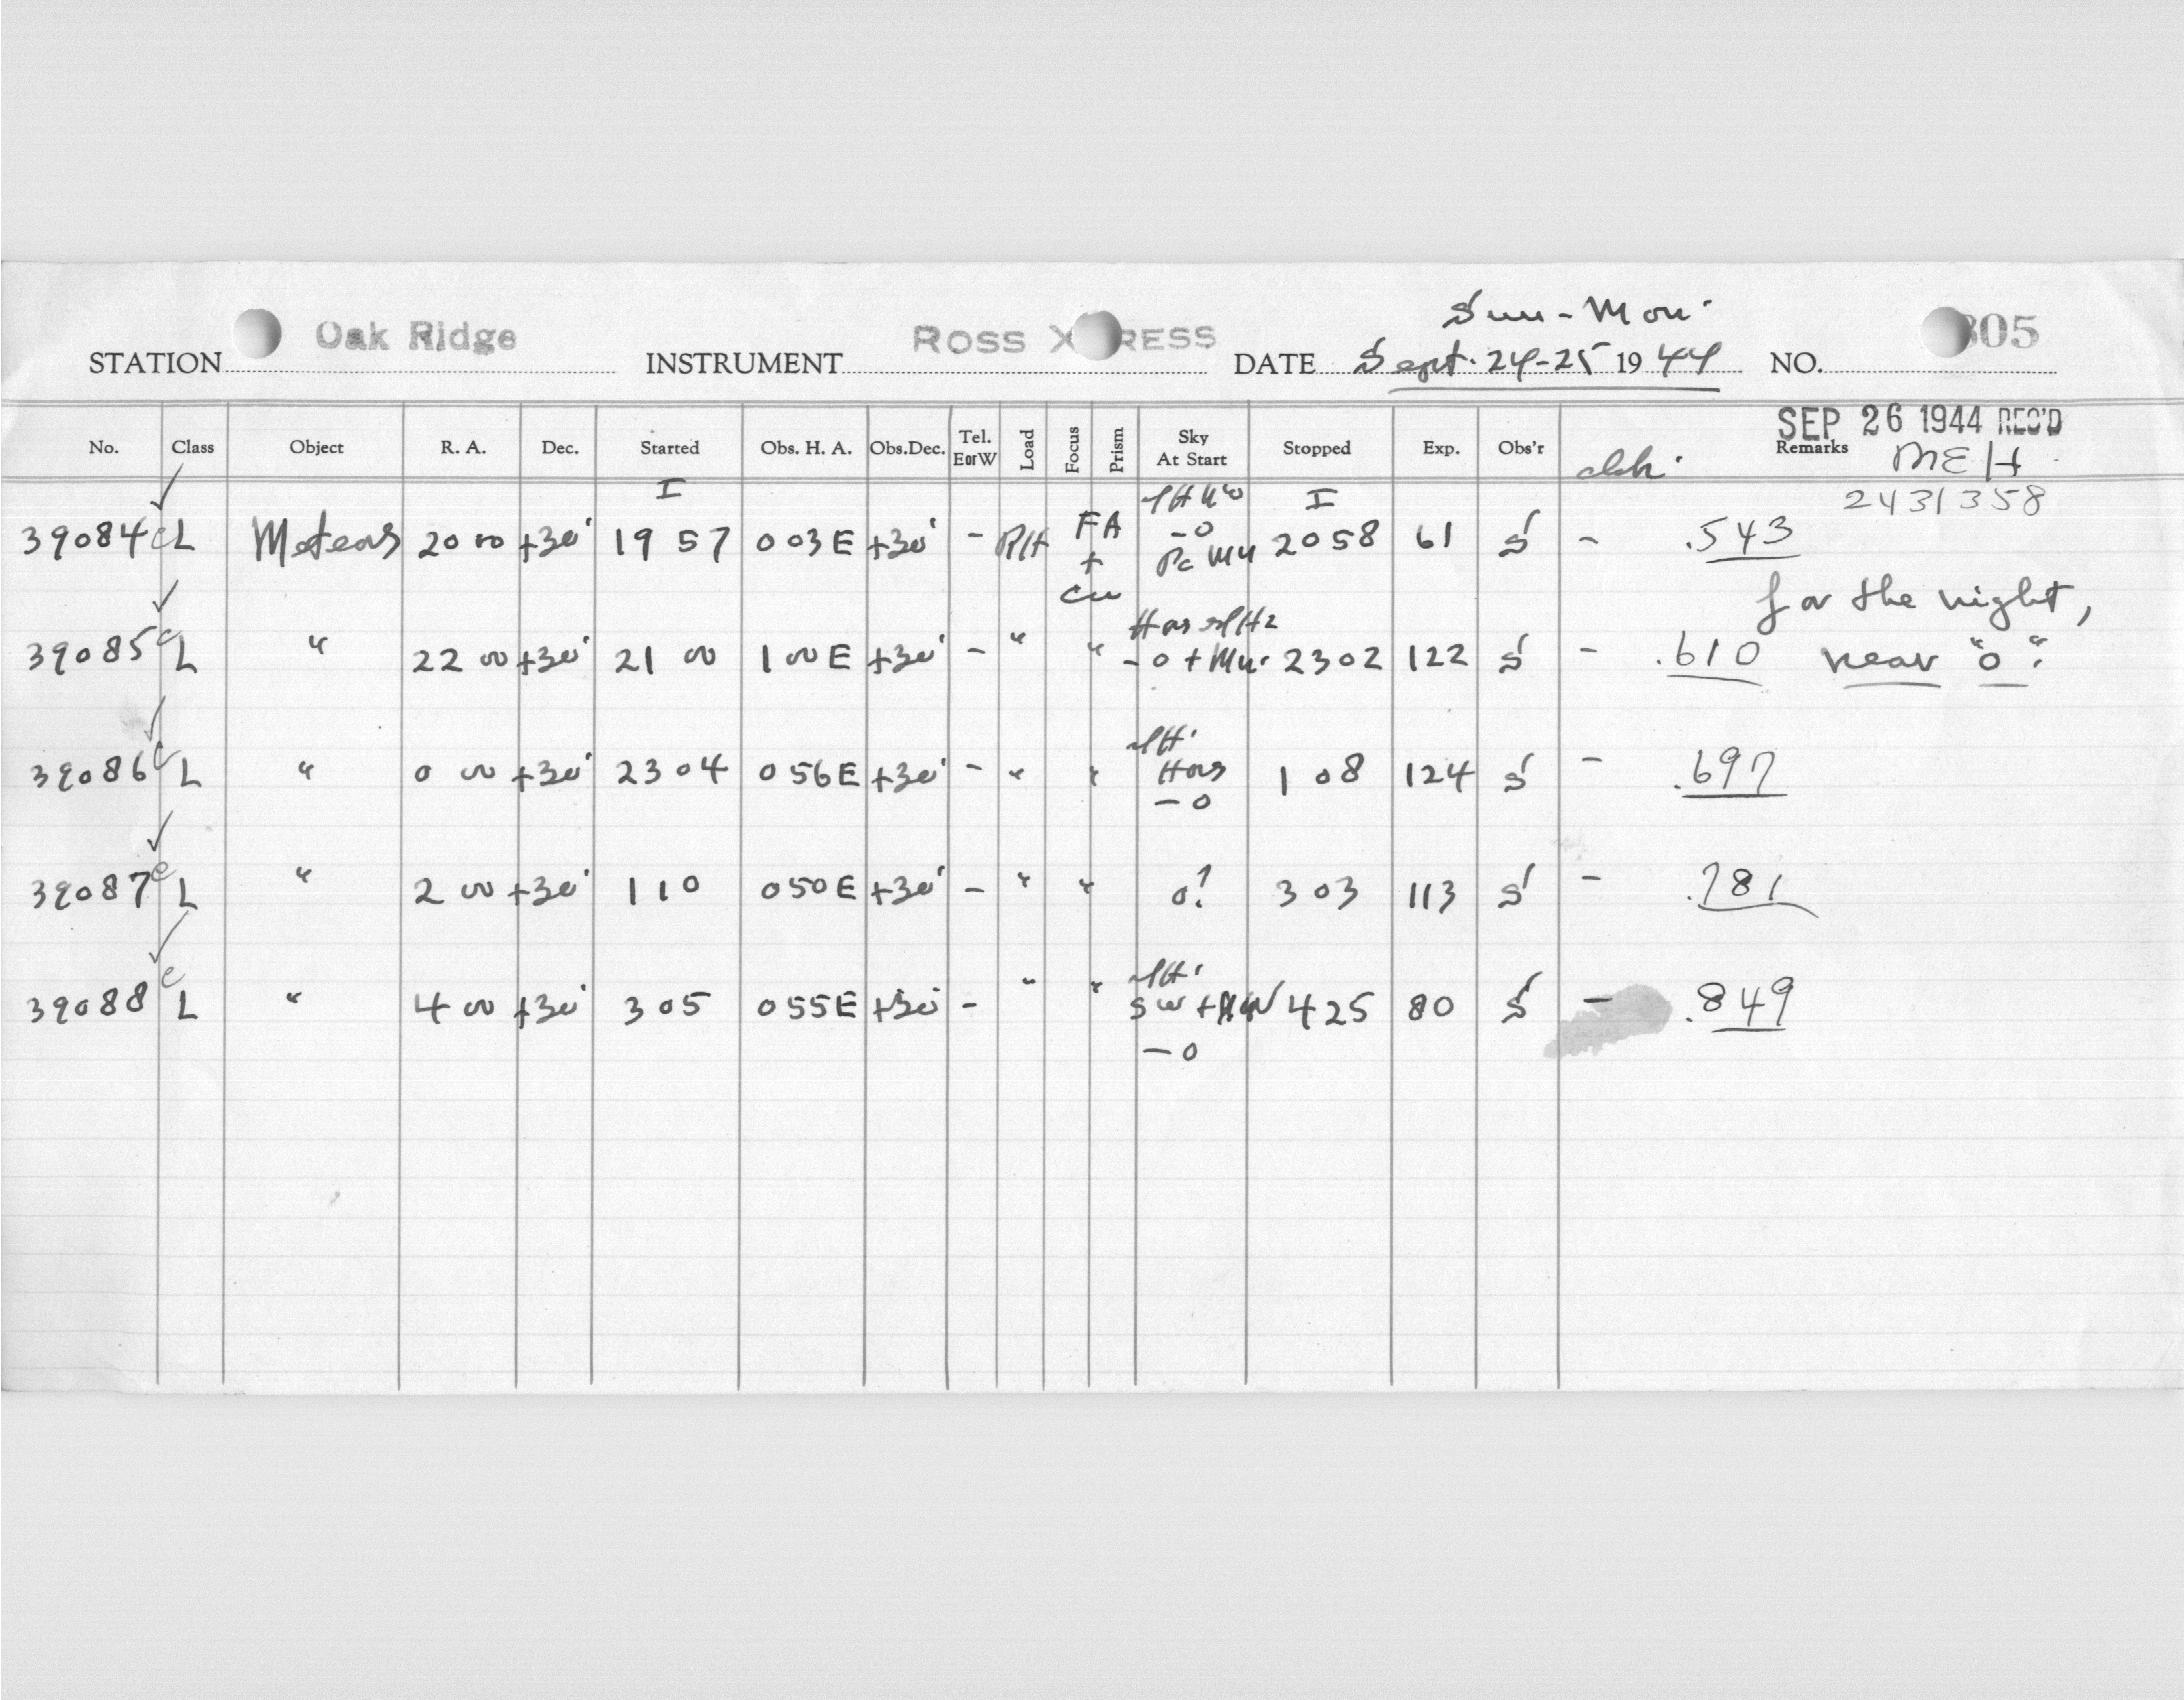 Sun - Mon.
STATION Oak Ridge INSTRUMENT ROSS XPRESS DATE Sept. 24-25 1944 NO. 305
SEP 26 1944 REC'D
No. Class Object R. A. Dec. Started Obs. H. A. Obs.Dec. Tel. EorW Load Focus Prism Sky At Start Stopped Exp. Obs'r Remarks MEH
I I 2431358
39084 c L Meteors 20 00 +30° 19 57 0 03 E +30° - PH FA + Cu -0 20 58 61 S - .543
for the night,
39085 c L " 22 00 +30° 21 00 1 00 E +30° - " " -0 + Mu. 23 02 122 S - .610 near "0".
39086 c L " 0 00 +30° 23 04 0 56 E +30° - " " -0 1 08 124 S - .697
39087 c L " 2 00 +30° 1 10 0 50 E +30° - " " 0? 3 03 113 S - .781
39088 c L " 4 00 +30° 3 05 0 55 E +30° - " " SW + NW 4 25 80 S - .849
-0